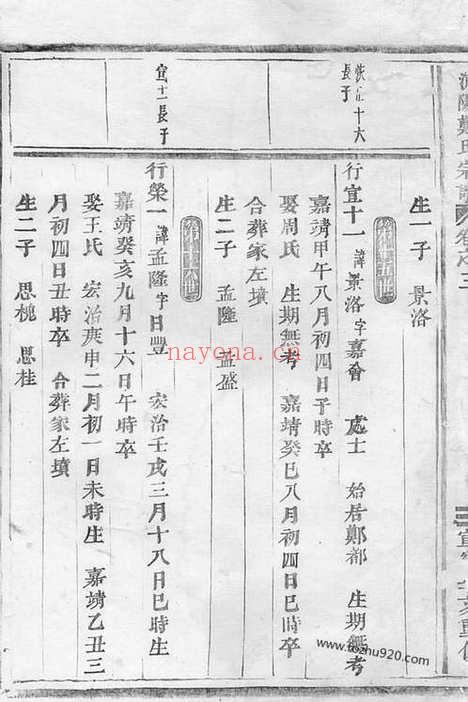 生一子 景洛
長子
行宜十一 諱景洛字嘉會 處士 始居鄭都 生期無考
嘉靖甲午八月初四日子時卒
娶周氏 生期無考 嘉靖癸巳八月初四日巳時卒
合葬家左墳
生二子 孟隆 孟盛
宜十一長子
行榮一 諱孟隆字日豐 宏治壬戌三月十八日巳時生
嘉靖癸亥九月十六日午時卒
娶王氏 宏治庚申二月初一日未時生 嘉靖乙丑三
月初四日丑時卒 合葬家左墳
生二子 思槐 思桂
nayona.cn
www.tcshu920.com